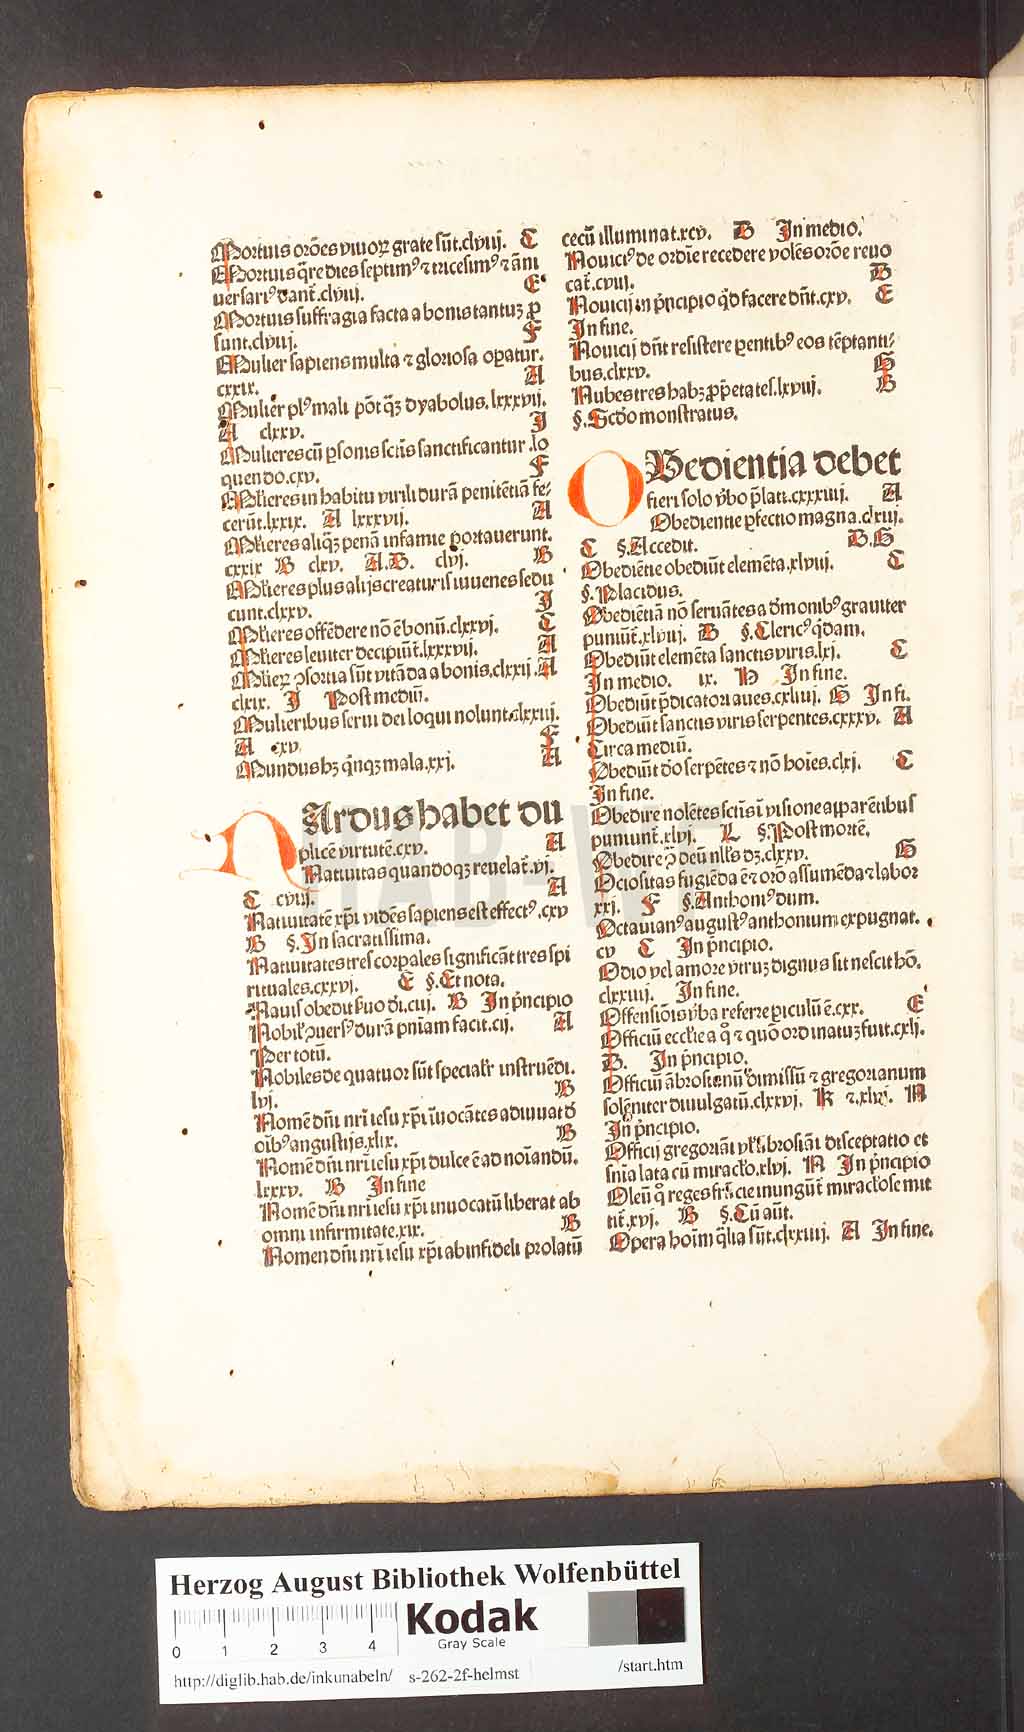 Mortuis orões viuoꝝ grate sũt.clviij. C
Mortuis q̃re dies septimꝰ ⁊ tricesimꝰ ⁊ ãni
uersariꝰ dant̃.clviij. E
Mortuis suffragia facta a bonis tantuꝫ ꝓ
sunt.clviij. F
Mulier sapiens multa ⁊ gloriosa oꝑatur.
cxxix. A
Mulier plꝰ mali põt q̃ꝫ dyabolus.lxxxvij.
A clxxv. J
Mulieres cũ ꝑsonis sctis sanctificantur.lo
quendo.cxv. F
Mlieres in habitu virili durã penitẽtiã fe⸗
cerũt.lxxix. A lxxxvij. A
Mlieres aliq̃ꝫ penã infamie portauerunt.
cxxix B clxv. A.B. clvj. B
Mlieres plus alijs creaturis iuuenes sedu
cunt.clxxv. J
Mlieres offẽdere nõ ẽ bonũ.clxxvj. C
Mlieres leuiter decipiũt.lxxxvij. A
Mlierꝝ ꝯsortia sũt vitãda a bonis.clxxij.A
clxix. J Post mediũ.
Mulieribus serui dei loqui nolunt.clxxiij.
A cxv. F
Mundus hꝫ q̃nqꝫ mala.xxj. A
NArdus habet du
plicẽ virtutẽ.cxv. A
Natiuitas quandoqꝫ reuelat̃.vj.
C cviij. A
Natiuitatẽ xp̃i vidẽs sapiens est effectꝰ.cxv
B §.In sacratissima.
Natiuitates tres corpales significãt tres spi
rituales.cxxvj. E §.Et nota.
Nauis obedit suo dñi.ciij. B In p̃ncipio
Nobilꝭ ꝯuersꝰ durã pñiam facit.cij. A
Per totũ.
Nobiles de quatuor sũt specialr̃ instruẽdi.
lvj. B
Nomẽ dñi nri iesu xp̃i ĩuocãtes adiuuat d̃
oĩbꝰ angustijs.xlix. B
Nomẽ dñi nri iesu xp̃i dulce ẽ ad noĩandũ.
lxxxv. B In fine
Nomẽ dñi nri iesu xp̃i inuocatũ liberat ab
omni infirmitate.xix. B
Nomen dñi nri iesu xp̃i ab infideli prolatũ
cecũ illuminat.xcv. B In medio.
Nouiciꝰ de ordĩe recedere volẽs orõe reuo
cat̃.cviij. B
Nouicij in p̃ncipio q̃d facere dñt.cxv. E
In fine.
Nouicij dñt resistere ꝑentibꝰ eos tẽptanti⸗
bus.clxxv. G
Nubes tres habꝫ ꝓp̃etates.lxviij. B
§.Scdo monstratus.
OBedientia debet
fieri solo v̾bo p̃lati.cxxxiiij. A
Obedientie ꝑfectio magna.clxiij.
C §.Accedit. B.G
Obediẽtie obediũt elemẽta.xlviij. C
§.Placidus.
Obediẽtiã nõ seruãtes a d̃monibꝰ grauiter
puniũt̃.xlviij. B §.Clericꝰ q̃dam.
Obediũt elemẽta sanctis viris.lxj. C
In medio. ix. H In fine.
Obediũt p̃dicatori aues.cxliiij. G In fi.
Obediũt sanctis viris serpentes.cxxxv. A
Circa mediũ.
Obediũt dõ serpẽtes ⁊ nõ hoĩes.clxj. C
In fine.
Obedire nolẽtes sctis ĩ visione apparẽtibus
puniunt̃.xlvj. L §.Post mortẽ.
Obedire ꝯ̃ deũ nlls dꝫ.clxxv. G
Ociositas fugiẽda ẽ ⁊ orõ assumẽda ⁊ labor
xxj. F §.Anthoniꝰ dum.
Octauianꝰ augustꝰ anthonium expugnat.
cv C In p̃ncipio.
Odio vel amore vtruꝫ dignus sit nescit hõ.
clxxiiij. In fine.
Offensiõis v̾ba referre ꝑiculũ ẽ.cxx. E
Officiũ ecclie a q̊ ⁊ quõ ordinatuꝫ fuit.cxlj.
B. In p̃ncipio.
Officiũ ãbrosianũ dimissũ ⁊ gregorianum
solẽniter diuulgatũ.clxxvj. K ⁊.xlvj. N
In p̃ncipio.
Officij gregoriãi vl̃ ãbrosiãi disceptatio et
snĩa lata cũ miraclo.xlvj. N In p̃ncipio
Oleũ q̊ reges frãcie inungũt̃ miraclose mit
tit̃.xvj. B §.Cũ aũt.
Opera hoĩm q̃lia sũt.clxxiiij. A In fine.
Herzog August Bibliothek Wolfenbüttel
Kodak
Gray Scale
0 1 2 3 4
http://diglib.hab.de/inkunabeln/ s-262-2f-helmst /start.htm
HAB-WF